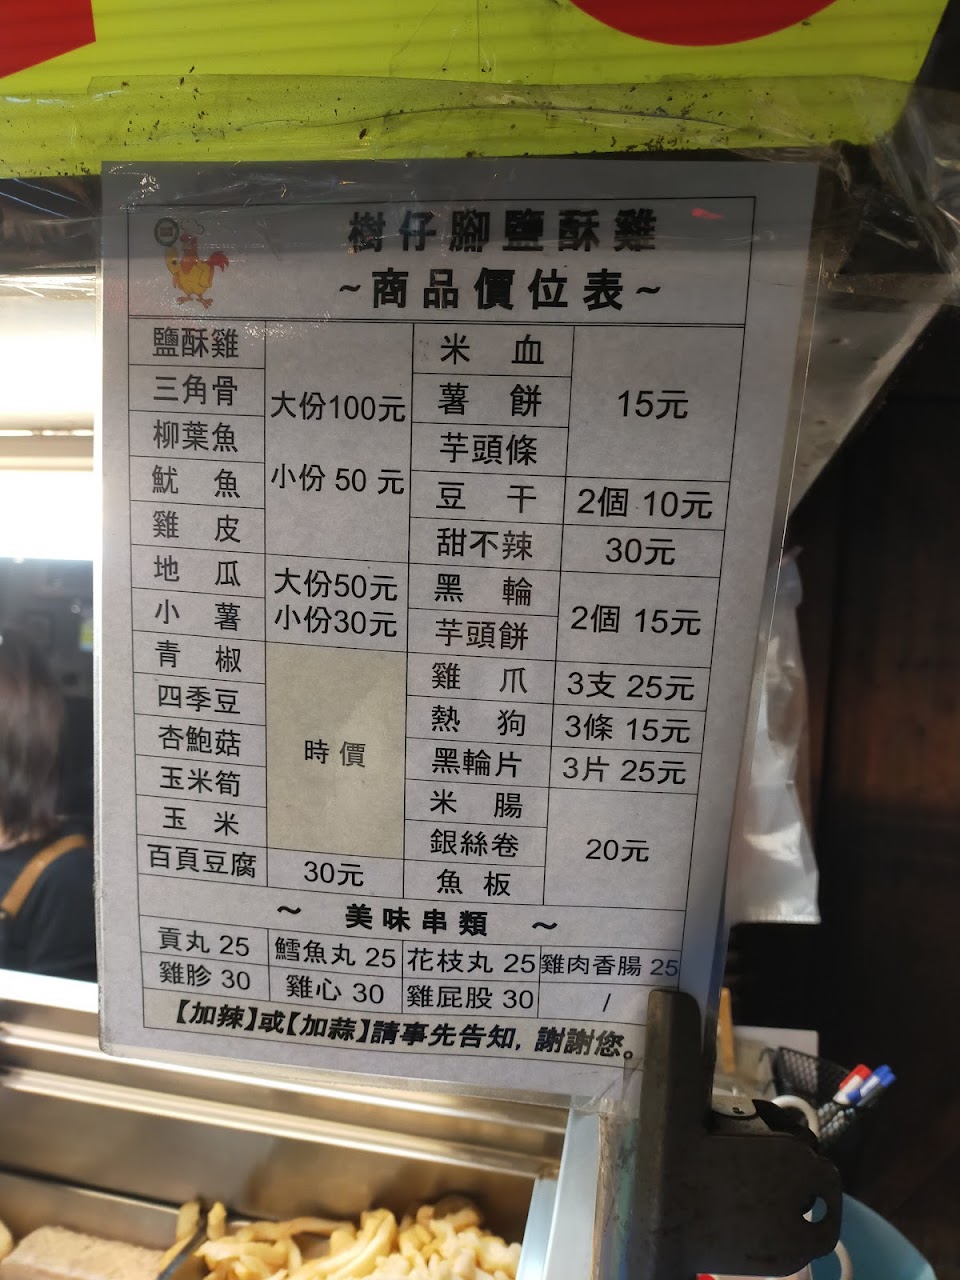 樹仔腳鹽酥雞
~商品價位表~
鹽酥雞
三角骨
柳葉魚
魷魚
雞皮
大份100元
小份 50 元
地瓜
小薯
大份50元
小份30元
青椒
四季豆
杏鮑菇
玉米筍
玉米
時價
百頁豆腐 30元
米血
薯餅
芋頭條
15元
豆干 2個 10元
甜不辣 30元
黑輪
芋頭餅
2個 15元
雞爪 3支 25元
熱狗 3條 15元
黑輪片 3片 25元
米腸
銀絲卷
魚板
20元
~ 美味串類 ~
貢丸 25 鱈魚丸 25 花枝丸 25 雞肉香腸 25
雞胗 30 雞心 30 雞屁股 30 /
【加辣】或【加蒜】請事先告知, 謝謝您。